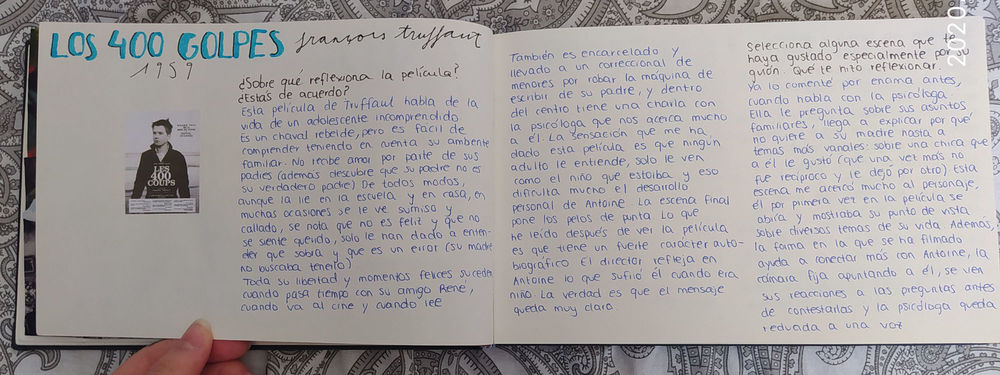 LOS 400 GOLPES françois truffaut
1959
LES
400
COUPS
¿Sobre qué reflexiona la película?
¿Estás de acuerdo?
Esta película de Truffaut habla de la
vida de un adolescente incomprendido
Es un chaval rebelde, pero es fácil de
comprender teniendo en cuenta su ambiente
familiar. No recibe amor por parte de sus
padres (además descubre que su padre no es
su verdadero padre) De todos modos,
aunque la lie en la escuela y en casa, en
muchas ocasiones se le ve sumiso y
callado, se nota que no es feliz y que no
se siente querido, solo le han dado a enten-
der que sobra y que es un error (su madre
no buscaba tenerlo)
Toda su libertad y momentos felices suceden
cuando pasa tiempo con su amigo René,
cuando va al cine y cuando lee
También es encarcelado y
llevado a un correccional de
menores por robar la máquina de
escribir de su padre, y dentro
del centro tiene una charla con
la psicóloga que nos acerca mucho
a él. La sensación que me ha
dado esta película es que ningún
adulto le entiende, solo le ven
como el niño que estorba y eso
dificulta mucho el desarrollo
personal de Antoine. La escena final
pone los pelos de punta. Lo que
he leído después de ver la película
es que tiene un fuerte carácter auto-
biográfico El director refleja en
Antoine lo que sufrió él cuando era
niño. La verdad es que el mensaje
queda muy claro.
Selecciona alguna escena que te
haya gustado especialmente por su
guión. Qué te hizo reflexionar
Ya lo comenté por encima antes,
cuando habla con la psicóloga.
Ella le pregunta sobre sus asuntos
familiares, llega a explicar por qué
no quiere a su madre hasta a
temas más vanales: sobre una chica que
a él le gustó (que una vez más no
fue recíproco y le dejó por otro) Esta
escena me acercó mucho al personaje,
él por primera vez en la película se
abría y mostraba su punto de vista
sobre diversos temas de su vida. Además,
la forma en la que se ha filmado
ayuda a conectar más con Antoine, la
cámara fija apuntando a él, se ven
sus reacciones a las preguntas antes
de contestarlas y la psicóloga queda
reducida a una voz
2020